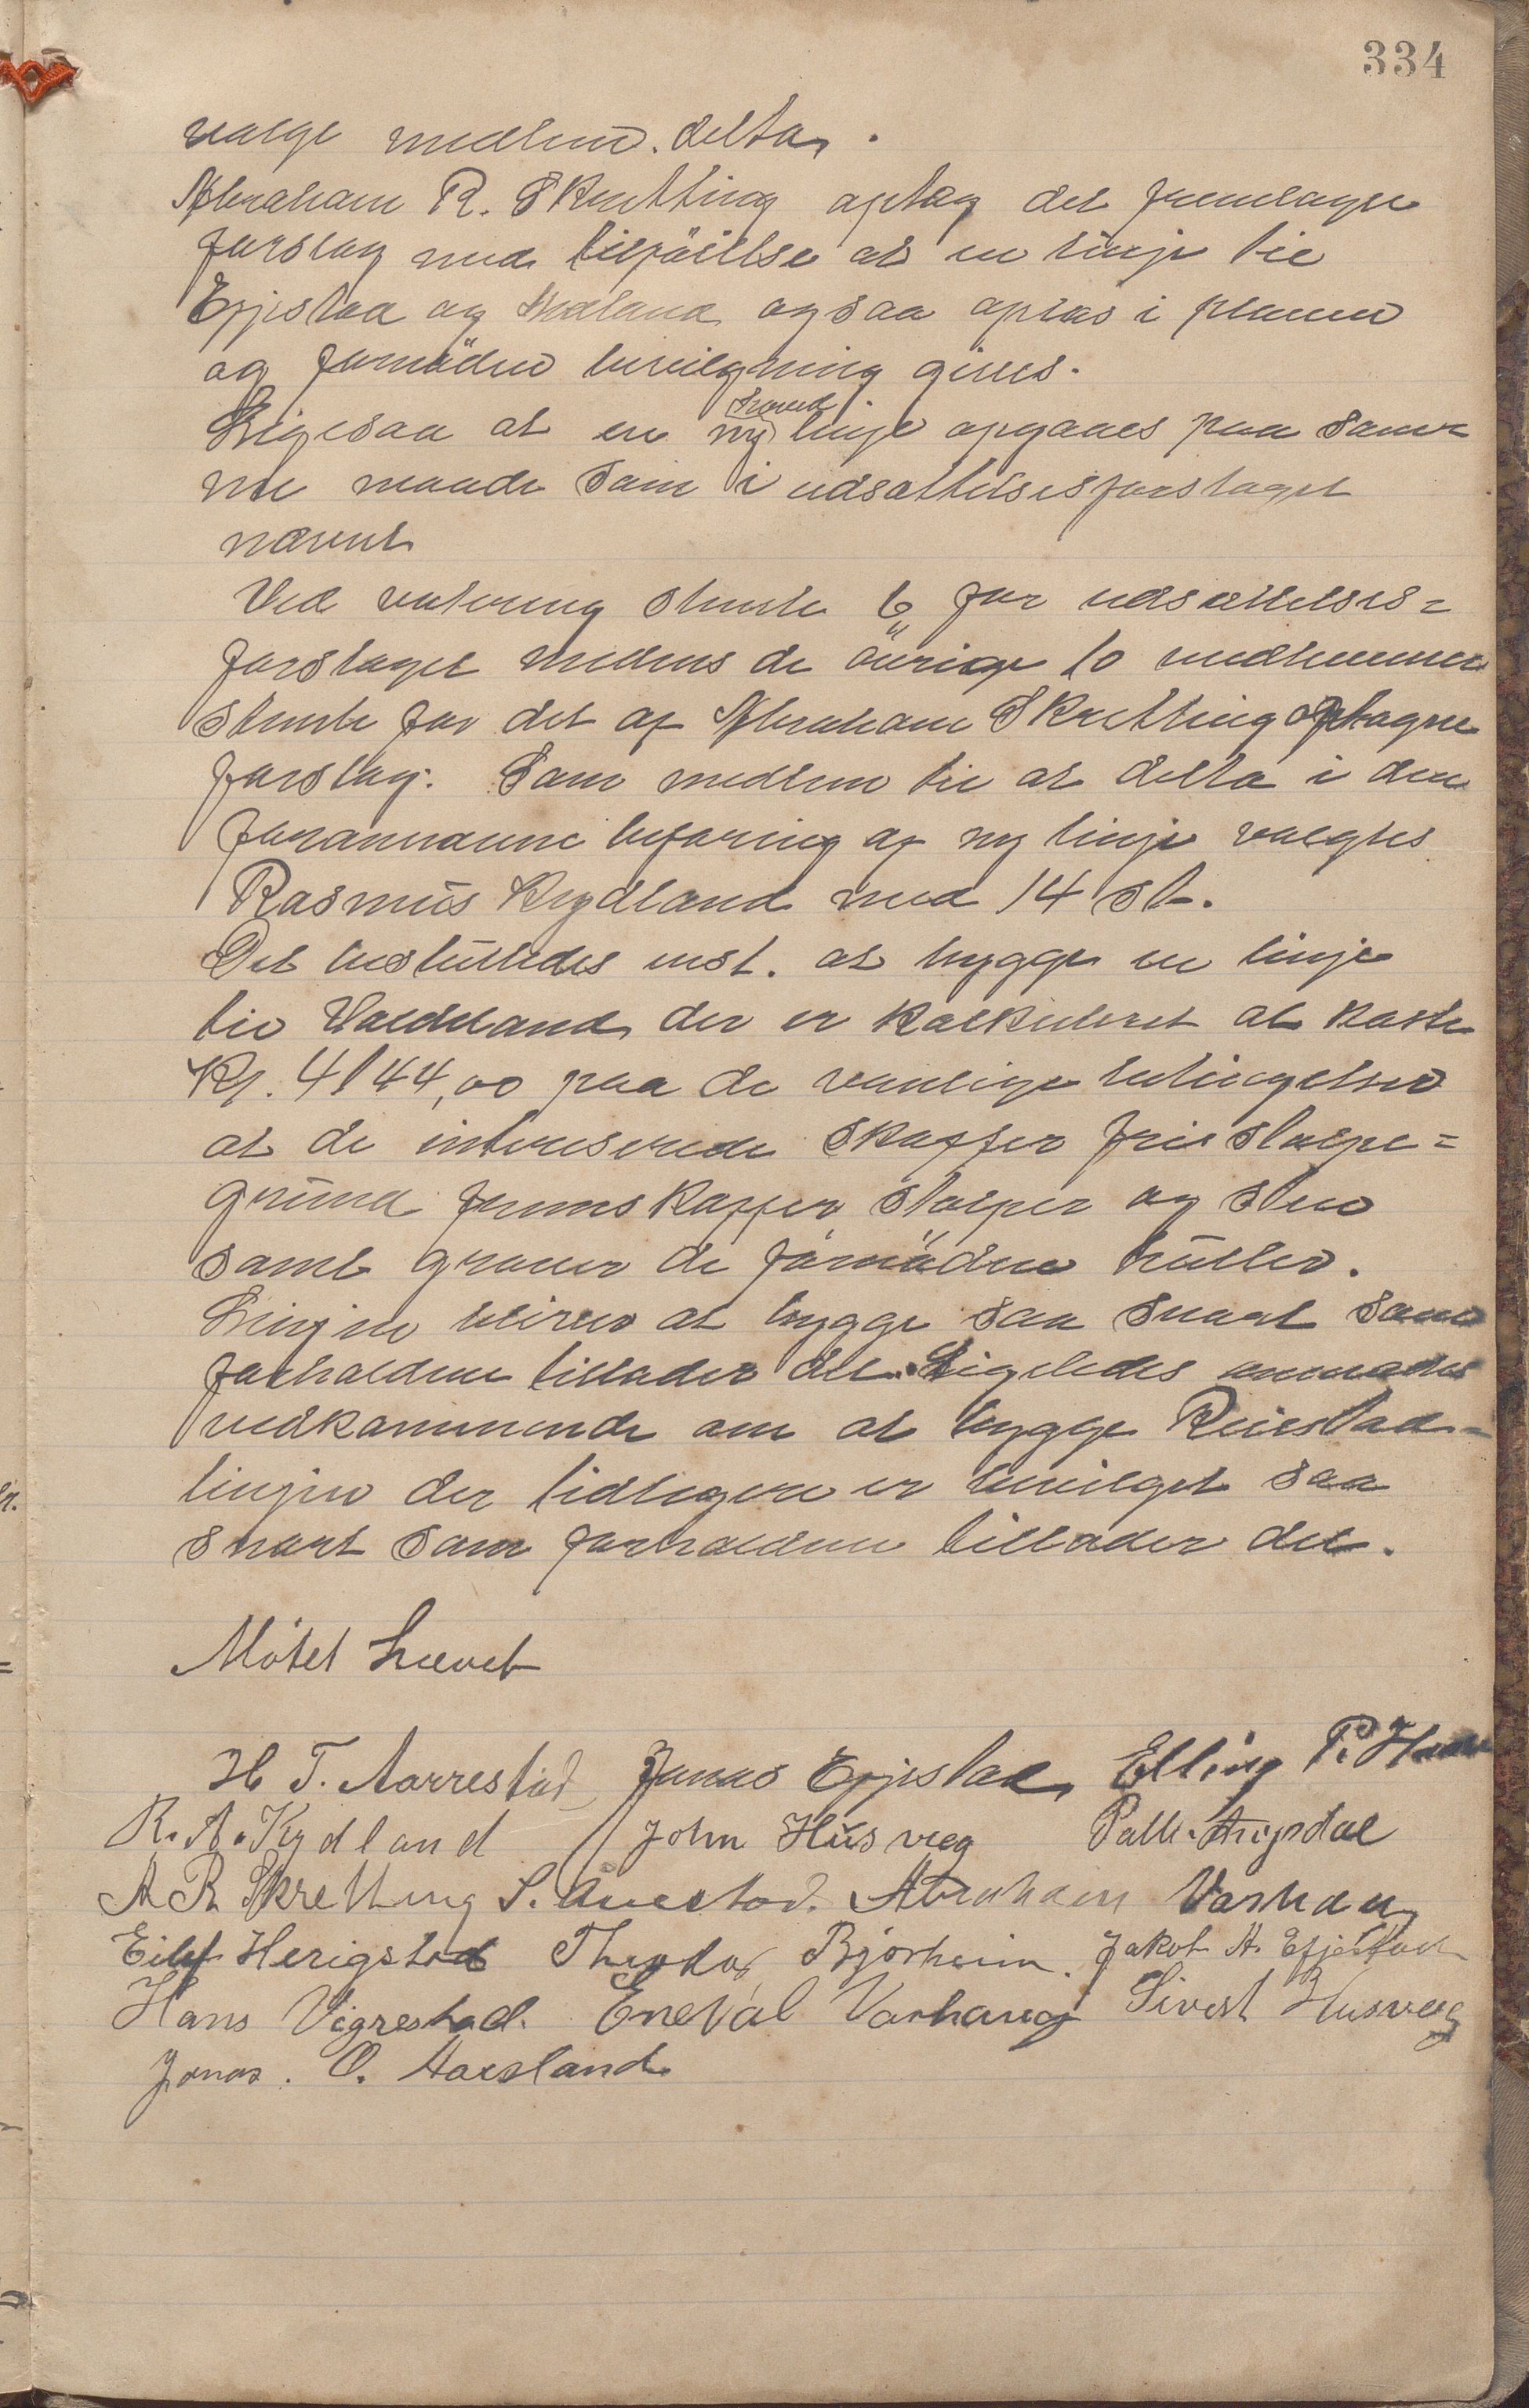 334
valgt medlem. deltar.
Abraham R. Skretting optog det fremlagte
forslag med tilföielse at en linje til
Epjestad og Aadland ogsaa optas i planen
og fornöden bevilgning gives.
Ligesaa at en ny hoved linje opgaaes paa sam-
me maade som i udsættelsesforslaget
nævnt
Ved votering stemte 6 for udsættelses=
forslaget medens de övrige 10 medlemmer
stemte for det af Abraham Skretting optagne
forslag. Som medlem til at delta i den
forannævnte befaring af ny linje valgtes
Rasmus Kydland med 14 st.
Det besluttedes enst. at bygge en linje
til Voldsland der er kalkuleret at koste
Kr. 4144,00 paa de vanlige betingelser
at de intereserede skaffer frie stolpe=
grund fremskaffer stolper og sten
samt graver de fornödne huller.
Linjen bliver at bygge saa snart som
forholdene tillader det. Ligeledes anmodes
vedkommende om at bygge Reiestad-
linjen der tidligere er bevilget saa
snart som forholdene tillader det.
Mötet hævet
H T. Aarrestad Jonas Epjestad Elling P.
R. A. Kydland John Husveg Palle Årsjsdal
A R Skretting S. Auestad. Abraham Varhaug
Eilef Herigstad Theodor Bjorheim. Jakob A. Efjestad
Hans Vigrestad. Enevál Varhaug Sivert Husveg
Jonas. O. Aarsland